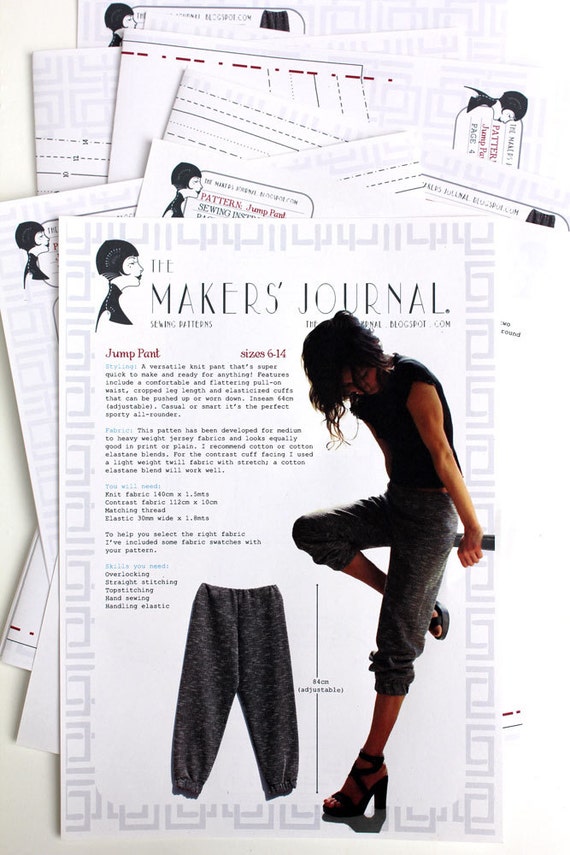 THE MAKERS JOURNAL.BLOGSPOT.COM
14
12
PATTERN
Jump Pant
PAGE 4
THE MAKERS
THE MAKERS JOURNAL.BLOGSPOT.COM
PATTERN: Jump Pant
SEWING INSTR
MAKERS JOURNAL.BLOGSPOT.COM
two
round
THE
MAKERS' JOURNAL®
SEWING PATTERNS
THE MAKERS JOURNAL . BLOGSPOT . COM
Jump Pant sizes 6-14
Styling: A versatile knit pant that's super
quick to make and ready for anything! Features
include a comfortable and flattering pull-on
waist, cropped leg length and elasticized cuffs
that can be pushed up or worn down. Inseam 64cm
(adjustable). Casual or smart it's the perfect
sporty all-rounder.
Fabric: This patten has been developed for medium
to heavy weight jersey fabrics and looks equally
good in print or plain. I recommend cotton or cotton
elastane blends. For the contrast cuff facing I used
a light weight twill fabric with stretch; a cotton
elastane blend will work well.
You will need:
Knit fabric 140cm x 1.5mts
Contrast fabric 112cm x 10cm
Matching thread
Elastic 30mm wide x 1.8mts
To help you select the right fabric
I've included some fabric swatches with
your pattern.
Skills you need:
Overlocking
Straight stitching
Topstitching
Hand sewing
Handling elastic
84cm
(adjustable)